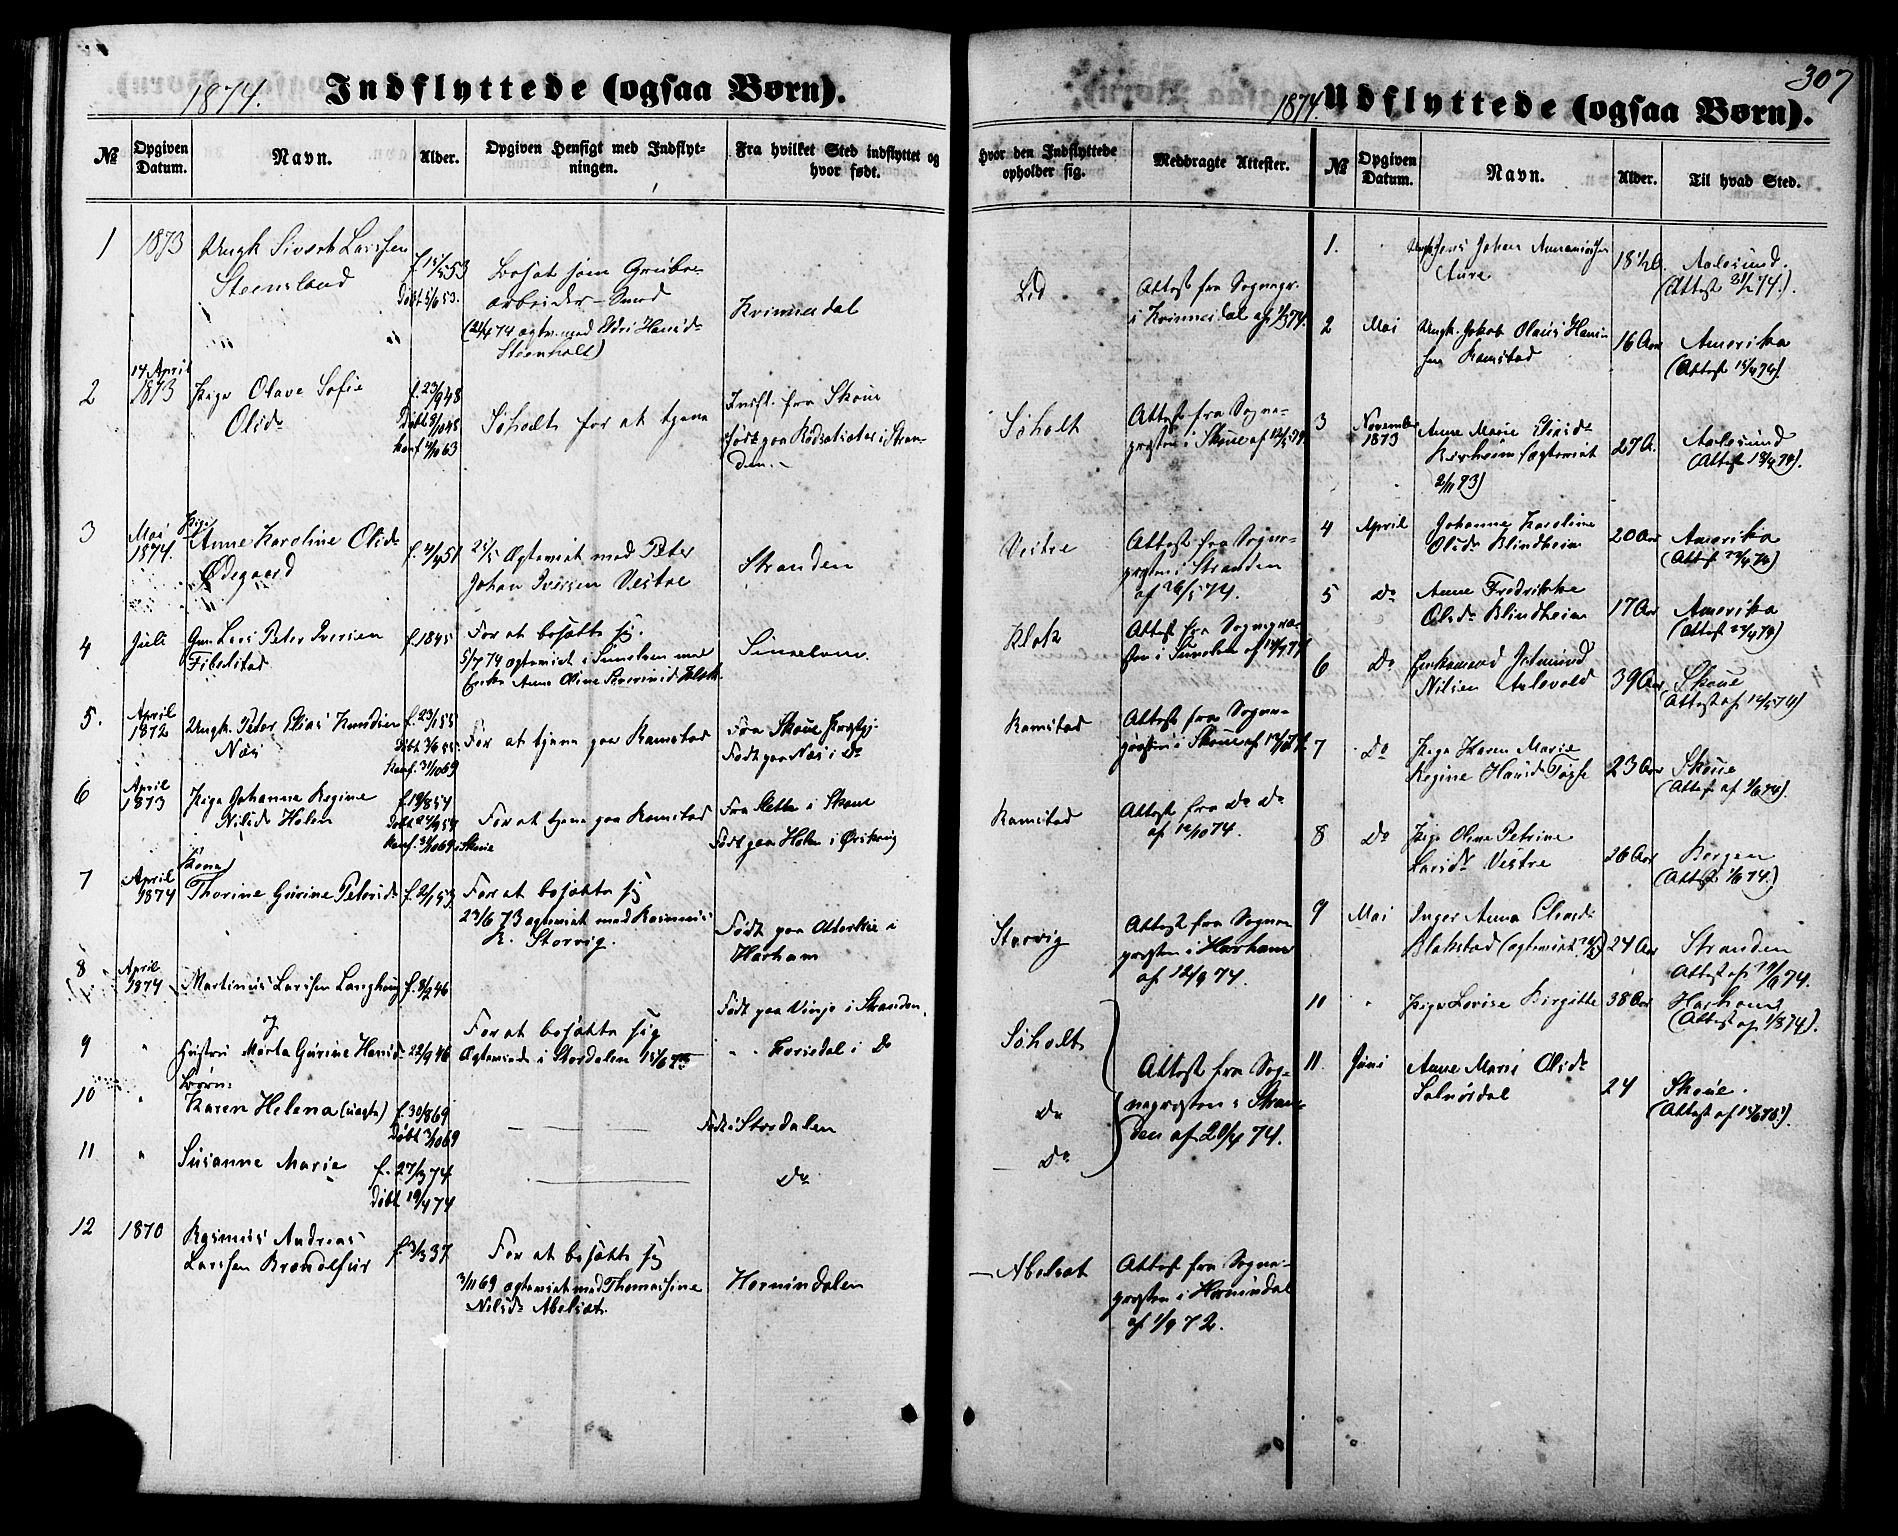 1874.
Indflyttede (ogsaa Børn).
№
Opgiven Datum.
Navn.
Alder.
Opgiven Hensigt med Indflyt-
ningen.
Fra hvilket Sted indflyttet og
hvor født.
Hvor den Indflyttede
opholder sig.
Medbragte Attester.
1
1873
Ungk Sivert Larssen
Steensland
f. 15/5 53
Døbt 5/6 53.
Bosat som Grube-
arbeider - Smed
Steenholt)
Kvinnesdal
Lid
Attest fra Sognepr.
i Kvinnesdal af 1/3 74.
2
14 April
1873
Pige Olave Sofie
Olsdr
f. 23/9 48
Konf 4/10 63
Søholt for at tjene
Indfl. fra Skoue
født paa Rødsætister i Stran-
den.-
Søholt
Attest fra Sogne-
præsten i Skoue af
3
Mai
1874.
Pige
Anne Karoline Olsdr
Ødegaard
f. 4/4 51
21/5 Ægteviet med Peter
Johan Iversen Vestre
Stranden
Vestre
Attest fra Sogne-
præsten i Stranden
af 26/5 74.
4
Juli
Gm Lars Peter Iversen
Fibelstad
f. 1845
For at bosætte sig.
5/7 74 ægteviet i Sunelven med
Enke Anne Oline Siversd Klok.
Sunelven.
Klok
Attest fra Sognepræ-
sten i Sunelven af
5.
April
1872
Ungk. Peter Elias Knudsen
Næs
f. 23/1 55
Konf. 31/10 69
For at tjene paa Ramstad
Fra Skoue Præstgj
Født paa Næs i Do
Ramstad
Attest fra Sogne-
præsten i Skoue af
6
April
1873
Pige Johanne Regine
Nilsdr Holen
f. 19/8 54
Døbt 24/9 54
Konf. 31/10 69 i Skoue
For at tjene paa Ramstad
Fra Slette i Skoue
Født paa Holen i Ørskoug
Ramstad
Attest fra Do Do
af 12/10 74.
7
April
1874
Kone
Thorine Gurine Petersdr
f. 2/1 53
For at bosætte sig
23/6 73 ægteviet med Rasmus
K. Storvig.
Født paa Otterlei i
Harham
Storvig
Attest fra Sogne-
præsten i Harham
af 12/9 74.
8
April
1874
Martinus Larssen Langhaug
f. 8/2 46
For at bosætte sig
Ægteviede i Stordalen 15/6
Født paa Vinje i Stranden.
Søholt
9
"
og
Hustru Marta Gurine Hansdr
22/9 46
" " Korsedal i Do
Attest fra Sog-
nepræsten i Stran-
den af 20/4 74.
10
"
Børn:
Karen Helena (uægte)
f. 30/8 69
Døbt 3/10 69
Født i Stordalen
Do
11
"
Susanne Marie
f. 27/3 74
Døbt 19/4 74
Do
Do
12
1870
Rasmus Andreas
Larssen Brendefur
f. 3/3 37
For at bosætte sig
3/11 69 ægteviet med Thomassine
Nilsdr Abelsæt.
Hornindalen
Abelsæt
Attest fra Sogne-
præsten i Hornindal
af 1/9 72.
307
1874.
Udflyttede (ogsaa Børn).
№
Opgiven Datum.
Navn.
Alder.
Til hvad Sted.
1.
Ungk Jens Johan Ananiassen
Aure
18 1/2 A.
Aalesund.
(Attest 31/1 74.).
2
Mai
Ungk. Jakob Olaus Hans-
sen Ramstad
16 Aar
Amerika
(Attest 15/4 74).
3
November
1873
Anne Marie Elisdr
2/11 73)
27 A.
Aalesund
(Attest 18/4 74).
4
April
Johanne Karoline
Olsdr Blindheim
20 Aar
Amerika
(Attest 22/4 74)
5
Do
Anne Fredrikke
Olsdr Blindheim
17 Aar
Amerika
(Attest 22/4 74)
6
Do
Enkemand Jetmund
Nilsen Aslevold
39 Aar
Skoue
(Attest af 12/5 74)
7
Do
Pige Karen Marie
Regine Hansdr
23 Aar
Skoue
(Attest af 1/6 74).
8
Do
Pige Oline Petrine
Larsdr Vestre
26 Aar
Bergen
(Attest 1/6 74.)
9
Mai
Inger Anna Elisdr
Blakstad (ægteviet
24 Aar
Stranden
Attest af 19/6 74.
10
"
Pige Lovise Birgitte
38 Aar
Harham
(Attest af 1/8 74).
11.
Juni
Anne Marie Olsdr
Solnørdal
24
Skoue.